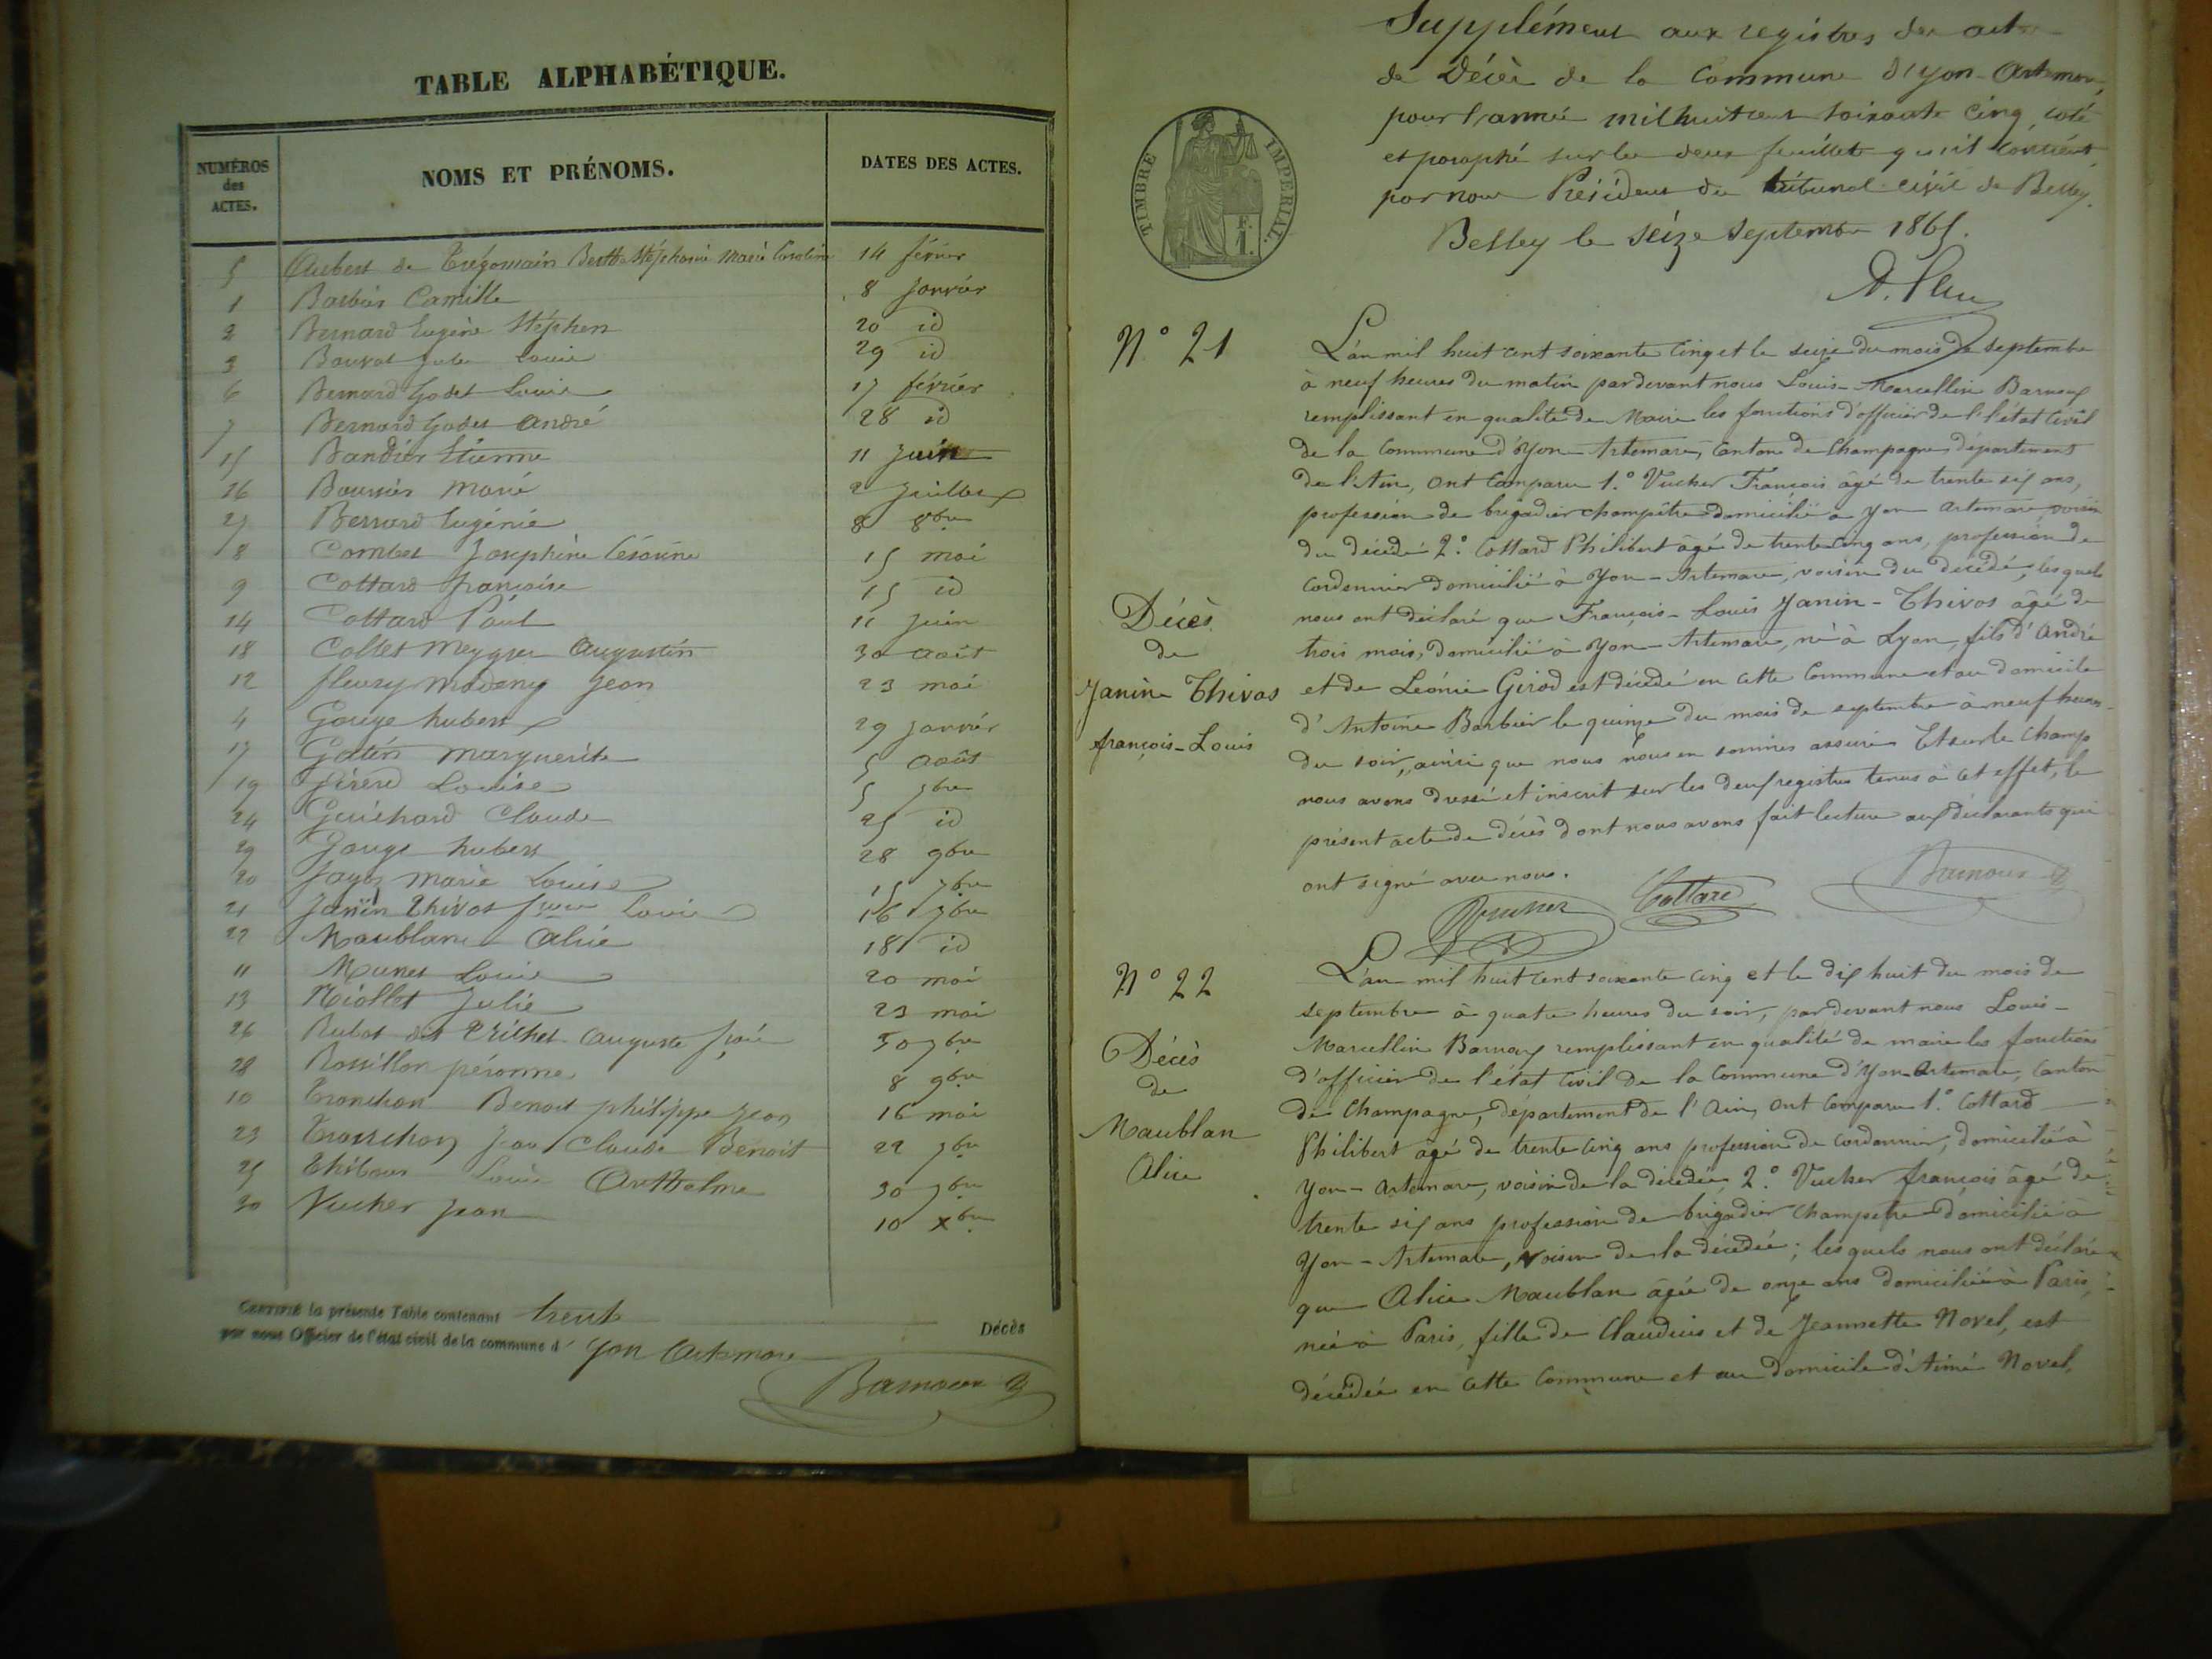 TABLE ALPHABÉTIQUE.
NUMÉROS des ACTES. NOMS ET PRÉNOMS. DATES DES ACTES.
5 Aubert de Trégomain Berthe Stéphanie Marie Caroline 14 février
1 Barbier Camille 8 janvier
2 Bernard Eugène Stéphen 20 id
3 Bouvat Jules Louis 29 id
6 Bernard Godet Louis 17 février
7 Bernard Godet André 28 id
15 Bandier Etienne 11 Juin
16 Marie 2 Juillet
27 Bernard Eugénie 8 8bre
8 Combet Joséphine Césarine 15 mai
9 Cottard françoise 15 id
14 Cottard Paul 11 Juin
18 Collet Meygret Augustin 30 août
12 fleury Jean 23 mai
4 Gouge hubert 29 janvier
17 Galin Marguerite 5 août
19 Louise 5 7bre
24 Guichard Claude 25 id
29 Gouge hubert 28 9bre
20 Marie Louise 15 7bre
21 Janin Thivos Louis 16 7bre
22 Maublanc Alice 18 id
11 Munet Louis 20 mai
13 Miollet Julie 23 mai
26 dit Auguste 30 7bre
28 Rossillon péronne 8 9bre
10 Tronchon Benoit philippe Jean 16 mai
23 Tronchon Jean Claude Benoit 22 7bre
25 Louis Anthelme 30 7bre
30 Vucher Jean 10 Xbre
CERTIFIÉ la présente Table contenant trente Décès
par nous Officier de l'état civil de la commune d' Yon Artemare
Barnoux
Supplément aux registres des actes
de Décès de la Commune d'yon-Artemare,
pour l'année mil huit cent soixante cinq, coté
et paraphé sur les deux feuillets qu'il contient,
par nous Président du tribunal civil de Belley.
Belley le seize septembre 1865.
TIMBRE IMPÉRIAL.
F. 1.
N° 21
L'an mil huit cent soixante cinq et le seize du mois de septembre
à neuf heures du matin pardevant nous Louis-Marcellin Barnoux
remplissant en qualité de Maire les fonctions d'officier de l'état civil
de la Commune d'Yon-Artemare, Canton de Champagne département
de l'Ain, ont comparu 1.° Vucher François âgé de trente six ans,
profession de brigadier champêtre domicilié à yon artemare voisin
du décédé 2.° Cottard Philibert âgé de trente cinq ans, profession de
cordonnier domicilié à Yon-Artemare, voisin du décédé, lesquels
nous ont déclaré que François-Louis Janin-Thivos âgé de
trois mois, domicilié à Yon-Artemare, né à Lyon, fils d'André
et de Léonie Girod est décédé en cette Commune et au domicile
d'Antoine Barbier le quinze du mois de septembre à neuf heures
du soir, ainsi que nous nous en sommes assuré Et sur le champ
nous avons dressé et inscrit sur les deux registres tenus à cet effet, le
présent acte de décès dont nous avons fait lecture aux déclarants qui
ont signé avec nous.
Décès
de
Janin Thivos
françois-Louis
Vucher Cottard Barnoux
N° 22
Décès
de
Maublan
Alice
L'an mil huit cent soixante cinq et le dix huit du mois de
septembre à quatre heures du soir, pardevant nous Louis-
Marcellin Barnoux remplissant en qualité de maire les fonctions
d'officier de l'état civil de la Commune d'Yon-Artemare, Canton
de Champagne, département de l'Ain, ont comparu 1.° Cottard
Philibert âgé de trente cinq ans profession de cordonnier, domicilié à
yon-artemare, voisin de la décédée, 2.° Vucher françois âgé de
trente six ans profession de brigadier champetre domicilié à
Yon-Artemare, voisin de la décédée; lesquels nous ont déclaré
que Alice Maublan âgée de onze ans domiciliée à Paris,
née à Paris, fille de Claudius et de Jeannette Novel, est
décédée en cette Commune et au domicile d'Aimé Novel,